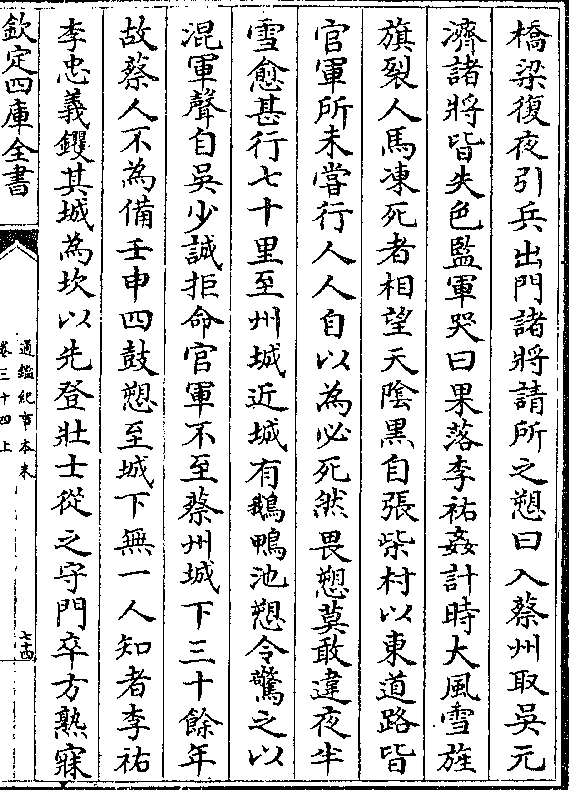 橋梁復夜引兵出門諸將請所之愬曰入蔡州取吳元
濟諸將皆失色監軍哭曰果落李祐姦計時大風雪旌
旗裂人馬凍死者相望天陰黑自張柴村以東道路皆
官軍所未嘗行人人自以為必死然畏愬莫敢違夜半
雪愈甚行七十里至州城近城有鵝鴨池愬令驚之以
混軍聲自吳少誠拒命官軍不至蔡州城下三十餘年
故蔡人不為備壬申四鼓愬至城下無一人知者李祐
李忠義钁其城為坎以先登壯士從之守門卒方熟寐
欽定四庫全書
通鑑紀事本末
卷三十四上
七十四